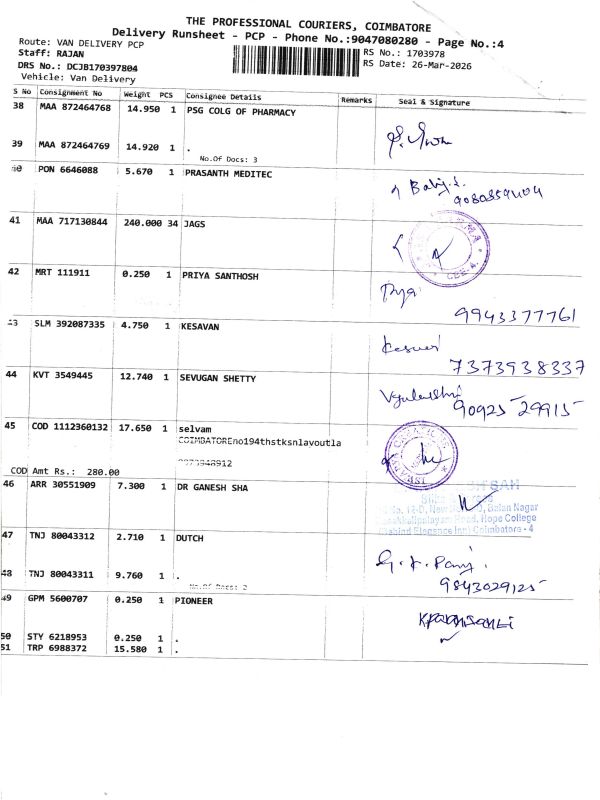 THE PROFESSIONAL COURIERS, COIMBATORE
Delivery Runsheet - PCP - Phone No.:9047080280 - Page No.:4
Route: VAN DELIVERY PCP
Staff: RAJAN
RS No.: 1703978
DRS No.: DCJB170397804
RS Date: 26-Mar-2026
Vehicle: Van Delivery
S No Consignment No Weight PCS Consignee Details Remarks Seal & Signature
38 MAA 872464768 14.950 1 PSG COLG OF PHARMACY
39 MAA 872464769 14.920 1 .
No.Of Docs: 3
40 PON 6646088 5.670 1 PRASANTH MEDITEC
41 MAA 717130844 240.000 34 JAGS
CBE-4
42 MRT 111911 0.250 1 PRIYA SANTHOSH
Priya
9943377761
43 SLM 392087335 4.750 1 KESAVAN
7373938337
44 KVT 3549445 12.740 1 SEVUGAN SHETTY
90925 29915
45 COD 1112360132 17.650 1 selvam
COIMBATOREno194thstksnlavoutla
COD Amt Rs.: 280.00
46 ARR 30551909 7.300 1 DR GANESH SHA
Balan Nagar
Road, Hope College
Coimbatore - 4
47 TNJ 80043312 2.710 1 DUTCH
48 TNJ 80043311 9.760 1 .
No.Of Docs: 2
9843029125
49 GPM 5600707 0.250 1 PIONEER
50 STY 6218953 0.250 1 .
51 TRP 6988372 15.580 1 .